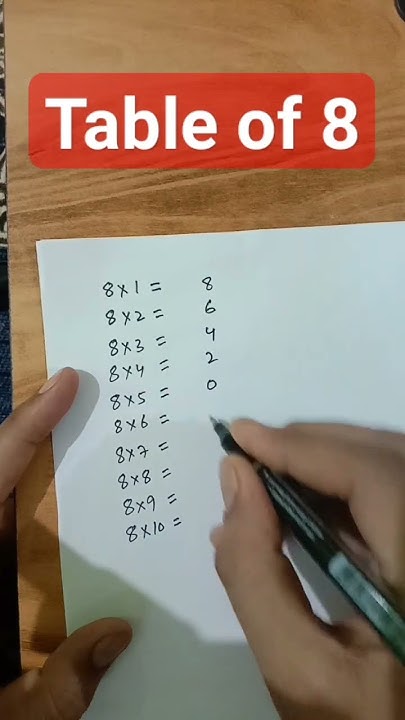 Table of 8
8×1 = 8
8×2 = 6
8×3 = 4
8×4 = 2
8×5 = 0
8×6 =
8×7 =
8×8 =
8×9 =
8×10 =